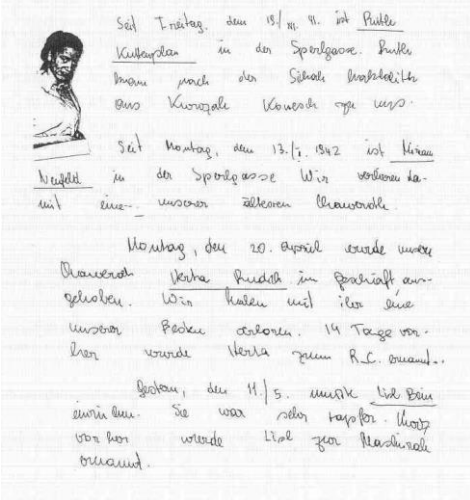 Seit Freitag, dem 19./XII. 41. ist Ruth
in der Sperlgasse. Ruth
kam nach der
aus zu uns.
Seit Montag, dem 13./I. 1942 ist Miriam
Neufeld in der Sperlgasse Wir verloren da-
mit eine unserer älteren Chaweroth.
Montag, den 20. April wurde unsere
Chaweroth Herta Rudich im Geschäft aus-
gehoben. Wir haben mit ihr eine
unserer Besten verloren. 14 Tage vor-
her wurde Herta zum R.C. ernannt.
Gestern, den 11./5. musste Lisl Bein
einrücken. Sie war sehr tapfer. Kurz
vorher wurde Lisl zur Maskirah
ernannt.